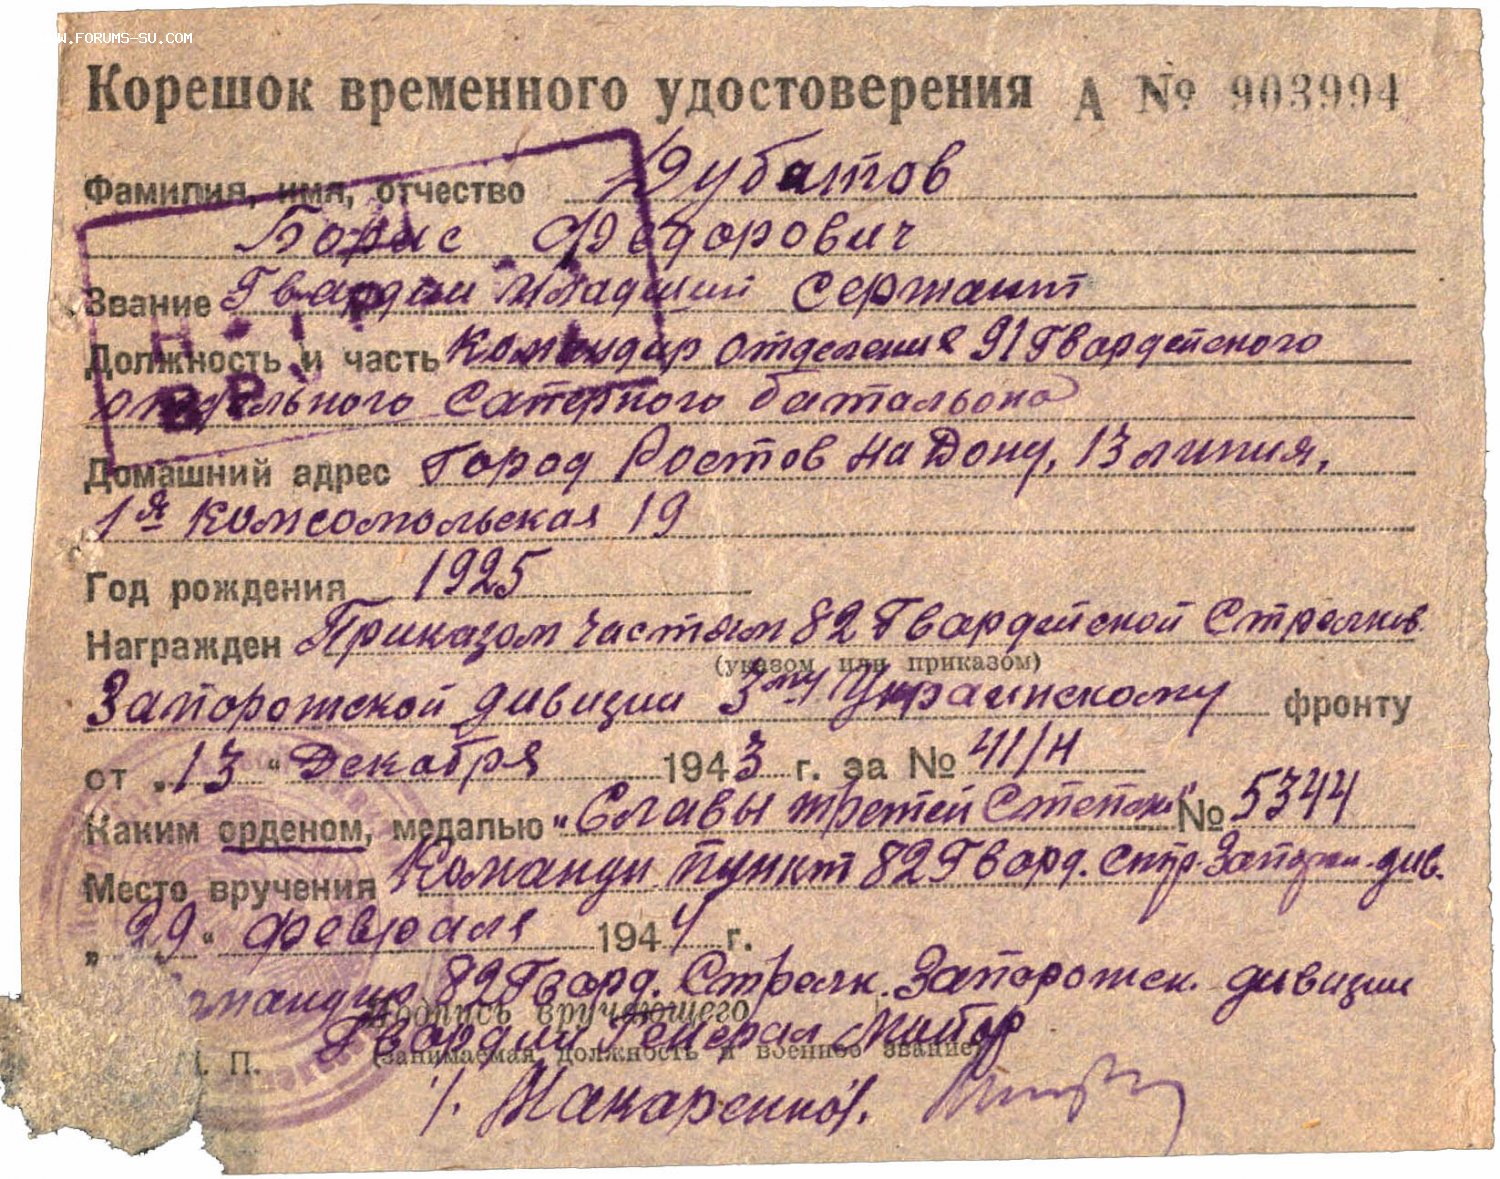 W.FORUMS-SU.COM
Корешок временного удостоверения А № 903994
Фамилия, имя, отчество Дубатов
Борис Федорович
Звание Гвардии младший сержант
Должность и часть командир отделения 91 Гвардейского
отдельного саперного батальона
Домашний адрес город Ростов на Дону, 13 линия,
1я Комсомольская 19
Год рождения 1925
Награжден Приказом частям 82 Гвардейской Стрелков.
(указом или приказом)
Запорожской дивизии 3му Украинскому фронту
от „13“ Декабря 1943 г. за № 41/н
Каким орденом, медалью „Славы третей Степени“ № 5344
Место вручения Команди. пункт 82 Гвард. стр. Запорож. див.
„29“ февраля 1944 г.
82 Гвард. Стрелк. Запорожск. дивизии
Подпись вручающего
Гвардии Генерал Майор
М. П. (занимаемая должность и военное звание)
/. Макаренко/.